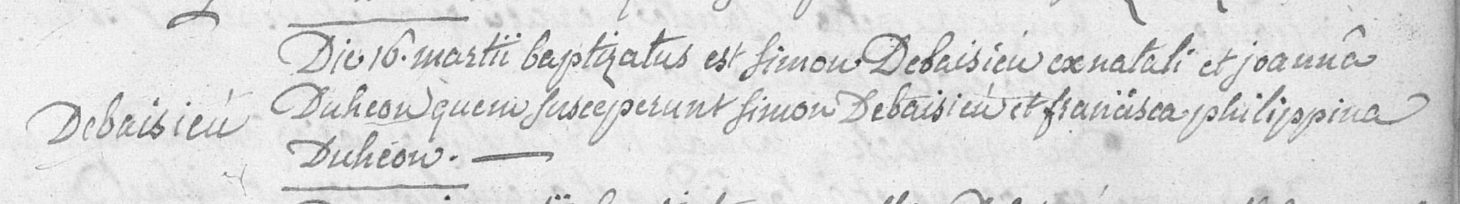 Die 16. martii baptizatus est simon Debaisieu ex natali et joannâ
Debaisieú
Duheon quem susceperunt simon Debaisieú et francisca philippina
Duhéon.